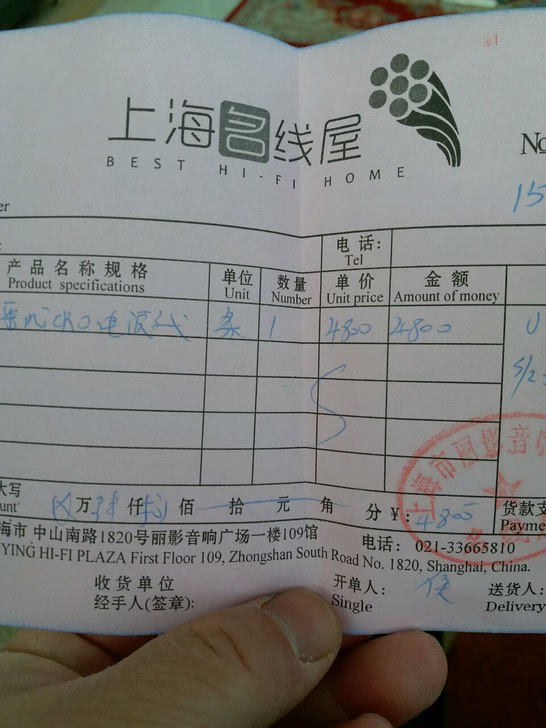 上海名线屋
BEST HI-FI HOME
No
15
电话:
Tel
产品名称规格 单位 数量 单价 金额
Product specifications Unit Number Unit price Amount of money
CRO电源线 条 1 4800 4800
大写 万 仟 佰 拾 元 角 分 ¥: 4800
上海市丽影音
货款支
Payme
海市 中山南路1820号丽影音响广场一楼109馆 电话: 021-33665810
YING HI-FI PLAZA First Floor 109, Zhongshan South Road No. 1820, Shanghai, China.
收货单位 开单人: 侯 送货人:
经手人(签章): Single Delivery